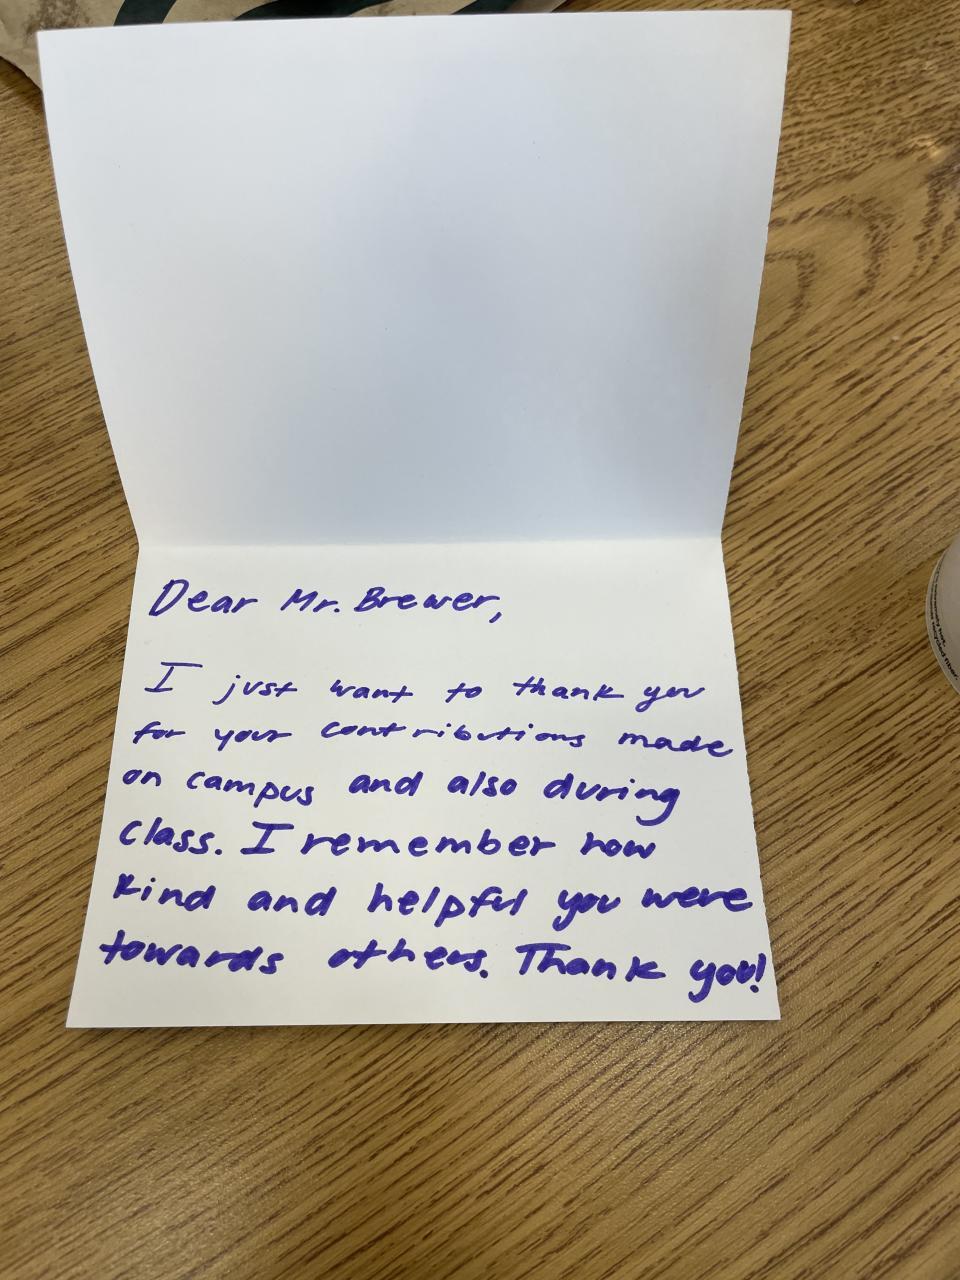 Dear Mr. Brewer,
I just want to thank you
for your contributions made
on campus and also during
class. I remember how
kind and helpful you were
towards others. Thank you!